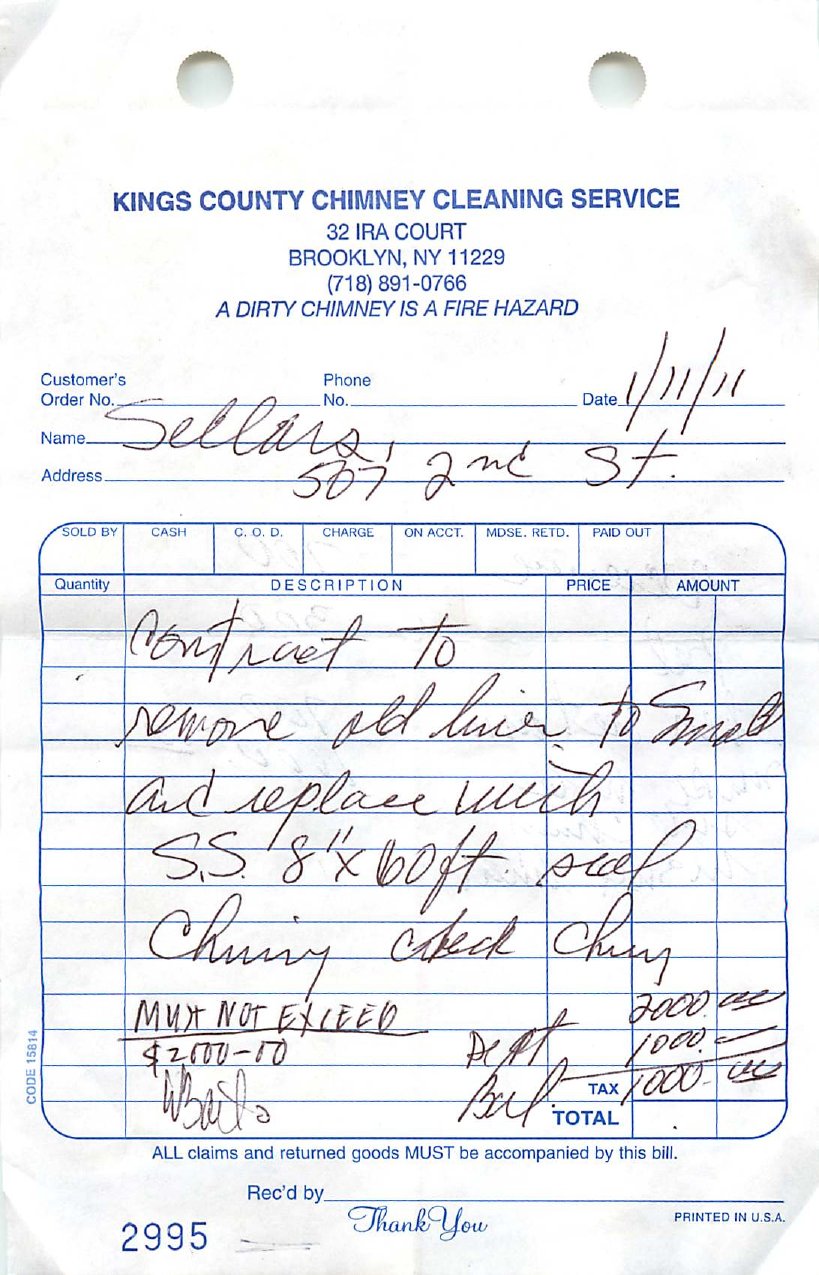 KINGS COUNTY CHIMNEY CLEANING SERVICE
32 IRA COURT
BROOKLYN, NY 11229
(718) 891-0766
A DIRTY CHIMNEY IS A FIRE HAZARD
Customer's Order No. Phone No. Date 1/11/11
Name Sellars,
Address 507 2nd St.
SOLD BY CASH C. O. D. CHARGE ON ACCT. MDSE. RETD. PAID OUT
Quantity DESCRIPTION PRICE AMOUNT
Contract to
remove old liner to Small
and replace with
S.S. 8" x 60 ft. seal
Chimny check Chimy
MUST NOT EXCEED 2000.00
$2000-00 Dept 1000.
Bal. TAX 1000-00
TOTAL
CODE 15814
ALL claims and returned goods MUST be accompanied by this bill.
Rec'd by
2995 Thank You PRINTED IN U.S.A.